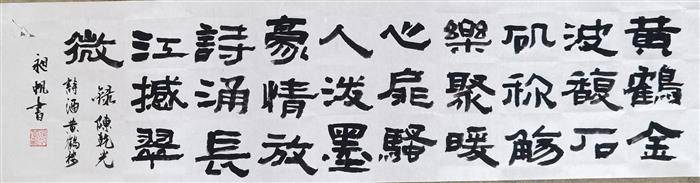 黃鶴金
波馥石
矶称觴
樂聚暖
心扉騷
人潑墨
豪情放
詩涌長
江撼翠
微
錄陳乾光
詩酒黄鶴樓
昶帆書